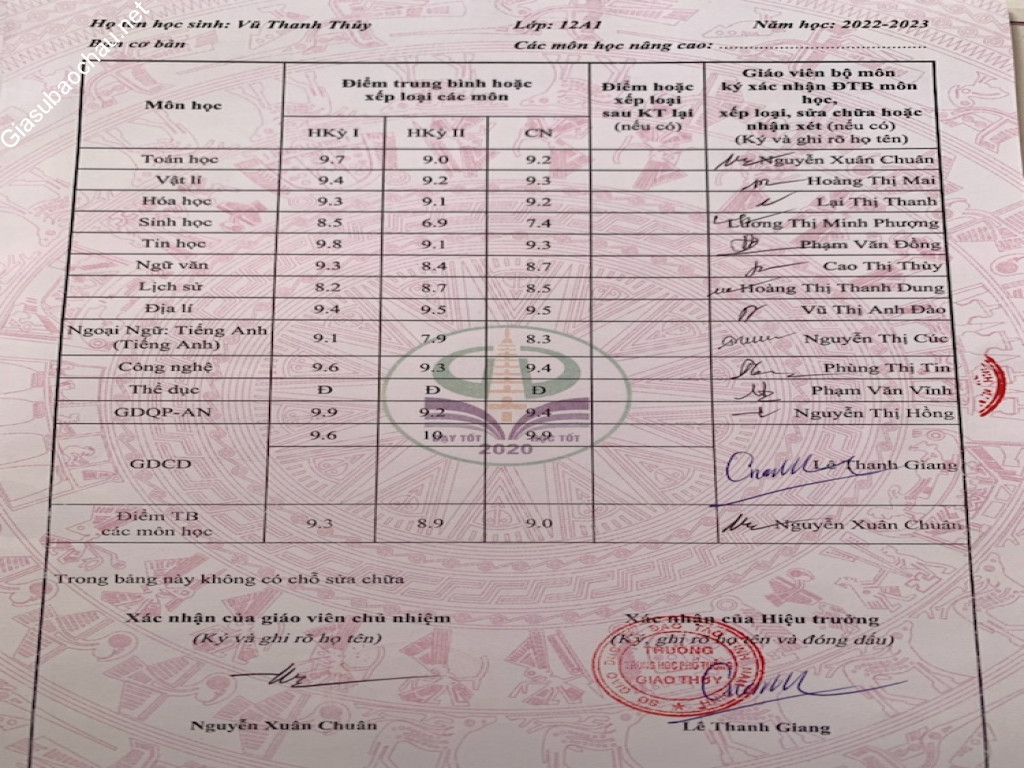 Giasubaochau.net
Họ tên học sinh: Vũ Thanh Thủy Lớp: 12A1 Năm học: 2022-2023
Ban cơ bản Các môn học nâng cao: ................................
Môn học
Điểm trung bình hoặc
xếp loại các môn
HKỳ I HKỳ II CN
Điểm hoặc
xếp loại
sau KT lại
(nếu có)
Giáo viên bộ môn
ký xác nhận ĐTB môn
học,
xếp loại, sửa chữa hoặc
nhận xét (nếu có)
(Ký và ghi rõ họ tên)
Toán học 9.7 9.0 9.2 Nguyễn Xuân Chuân
Vật lí 9.4 9.2 9.3 Hoàng Thị Mai
Hóa học 9.3 9.1 9.2 Lại Thị Thanh
Sinh học 8.5 6.9 7.4 Lương Thị Minh Phượng
Tin học 9.8 9.1 9.3 Phạm Văn Đồng
Ngữ văn 9.3 8.4 8.7 Cao Thị Thùy
Lịch sử 8.2 8.7 8.5 Hoàng Thị Thanh Dung
Địa lí 9.4 9.5 9.5 Vũ Thị Anh Đào
Ngoại Ngữ: Tiếng Anh
(Tiếng Anh) 9.1 7.9 8.3 Nguyễn Thị Cúc
Công nghệ 9.6 9.3 9.4 Phùng Thị Tin
Thể dục Đ Đ Đ Phạm Văn Vĩnh
GDQP-AN 9.9 9.2 9.4 Nguyễn Thị Hồng
GDCD 9.6 10 9.9 Lê Thanh Giang
DẠY TỐT HỌC TỐT
2020
Điểm TB
các môn học 9.3 8.9 9.0 Nguyễn Xuân Chuân
Trong bảng này không có chỗ sửa chữa
Xác nhận của giáo viên chủ nhiệm
(Ký và ghi rõ họ tên)
Nguyễn Xuân Chuân
Xác nhận của Hiệu trưởng
(Ký, ghi rõ họ tên và đóng dấu)
TRƯỜNG
TRUNG HỌC PHỔ THÔNG
GIAO THỦY
Lê Thanh Giang